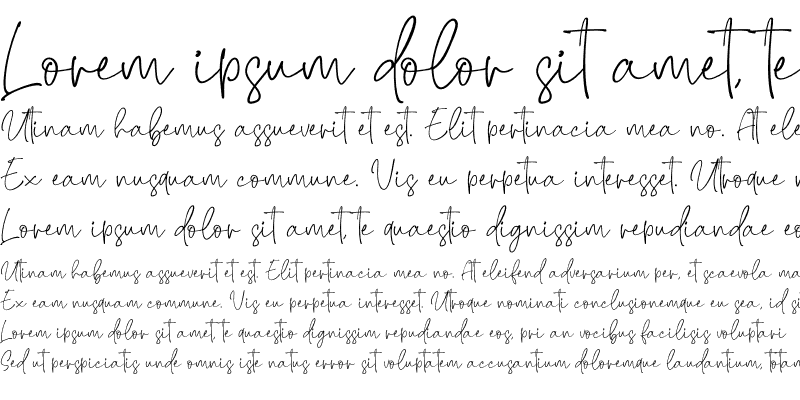 Lorem ipsum dolor sit amet, te
Utinam habemus assueverit et est. Elit pertinacia mea no. At ele
Ex eam nusquam commune. Vis eu perpetua interesset. Utroque
Lorem ipsum dolor sit amet, te quaestio dignissim repudiandae eo
Utinam habemus assueverit et est. Elit pertinacia mea no. At eleifend adversarium per, et scaevola ma
Ex eam nusquam commune. Vis eu perpetua interesset. Utroque nominati conclusionemque eu sea, id si
Lorem ipsum dolor sit amet, te quaestio dignissim repudiandae eos, pri an vocibus facilisis voluptari
Sed ut perspiciatis unde omnis iste natus error sit voluptatem accusantium doloremque laudantium, totam